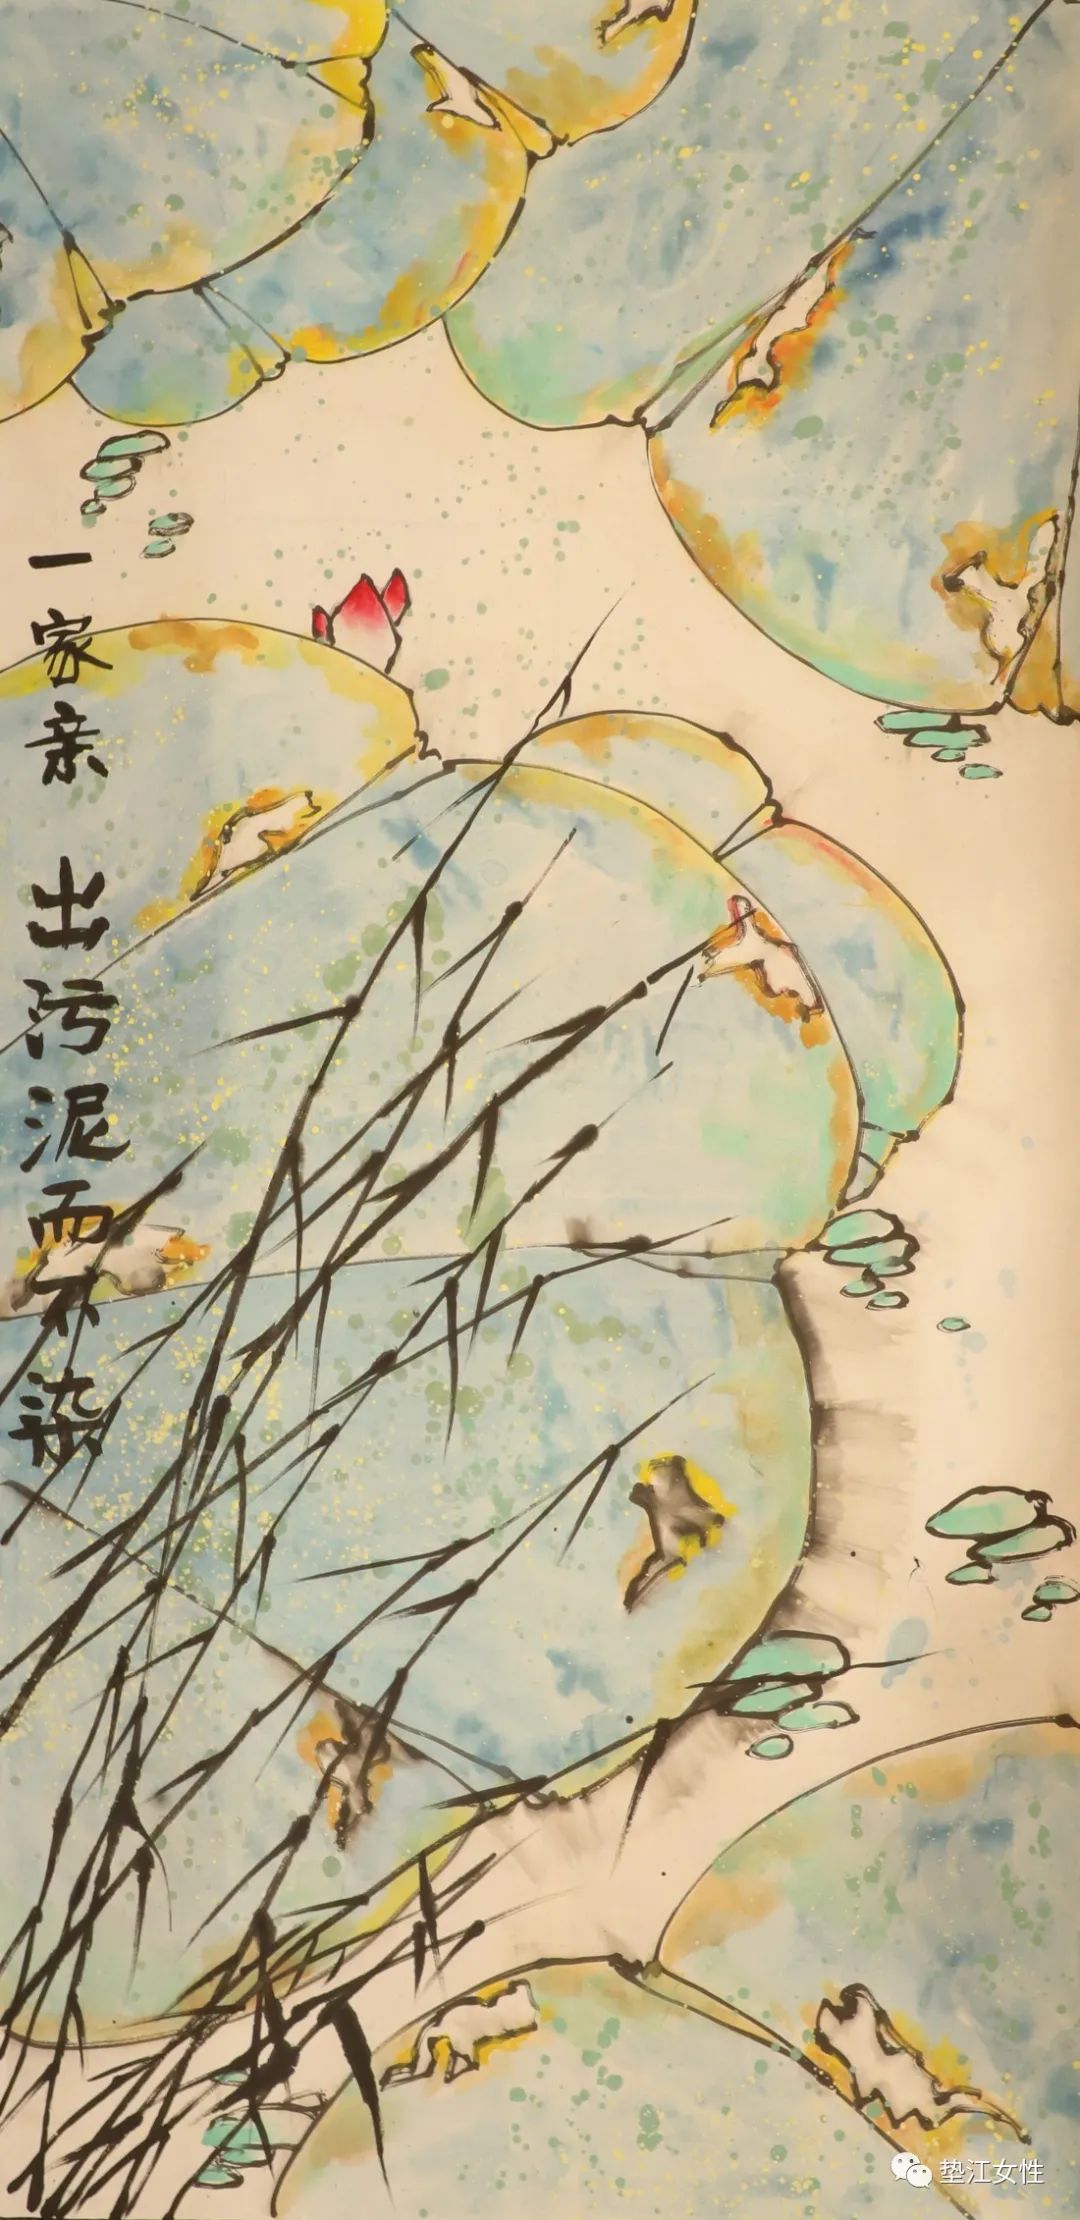 一家亲 出污泥而不染
垫江女性